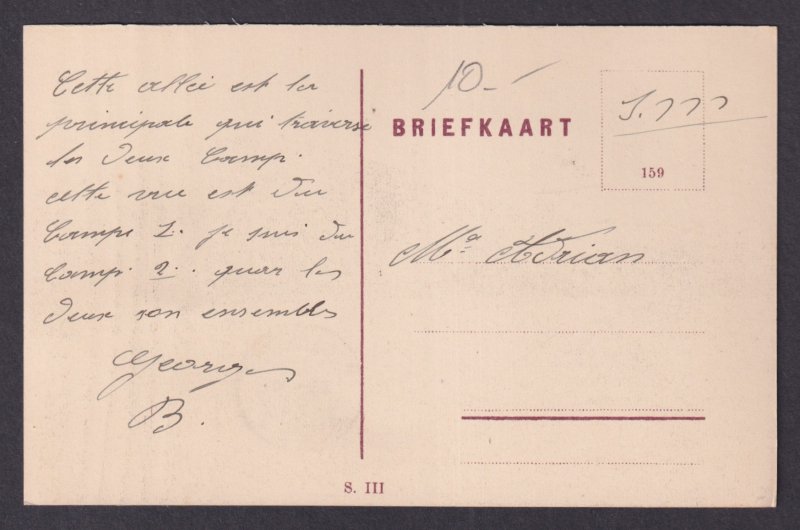 Cette allée est la
principale qui traverse
les deux Camp.
cette vue est du
Camps 1. je suis du
Camp 2. quar les
deux son ensembles
Georges
B.
10.-
BRIEFKAART
S. 111
159
Ma Adrian
S. III